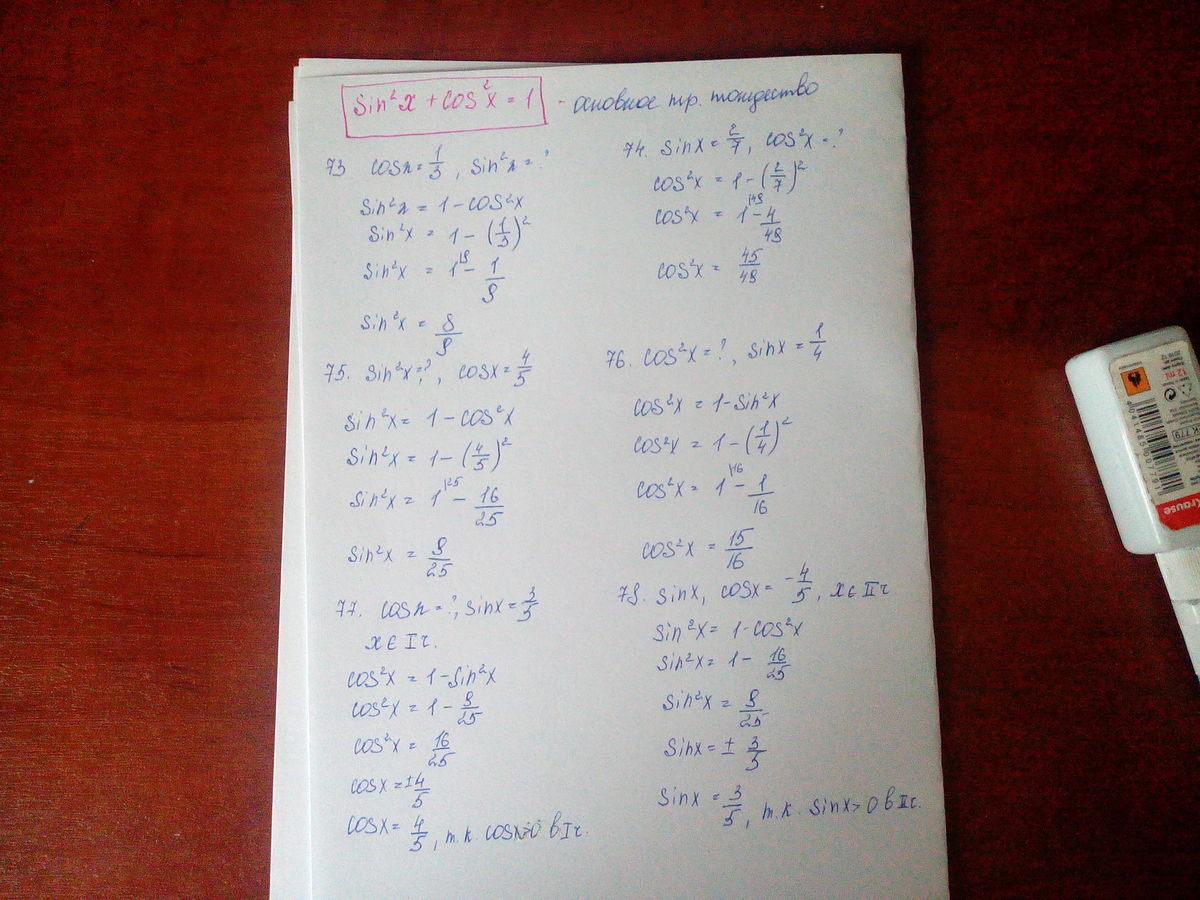 sin²x + cos²x = 1 - основное тр. тождество
73 cosx = 1/3, sin²x = ?
sin²x = 1 - cos²x
sin²x = 1 - (1/3)²
sin²x = 1|9 - 1/9
sin²x = 8/9
74. sinx = 2/7, cos²x = ?
cos²x = 1 - (2/7)²
cos²x = 1|49 - 4/49
cos²x = 45/49
75. sin²x = ?, cosx = 4/5
sin²x = 1 - cos²x
sin²x = 1 - (4/5)²
sin²x = 1|25 - 16/25
sin²x = 9/25
76. cos²x = ?, sinx = 1/4
cos²x = 1 - sin²x
cos²x = 1 - (1/4)²
cos²x = 1|16 - 1/16
cos²x = 15/16
77. cosx = ?, sinx = 3/5
x ∈ I ч.
cos²x = 1 - sin²x
cos²x = 1 - 9/25
cos²x = 16/25
cosx = ±4/5
cosx = 4/5, т.к. cosx>0 в I ч.
79. sinx, cosx = -4/5, x ∈ II ч
sin²x = 1 - cos²x
sin²x = 1 - 16/25
sin²x = 9/25
sinx = ± 3/5
sinx = 3/5, т.к. sinx>0 в II ч.
12 ml
Krause